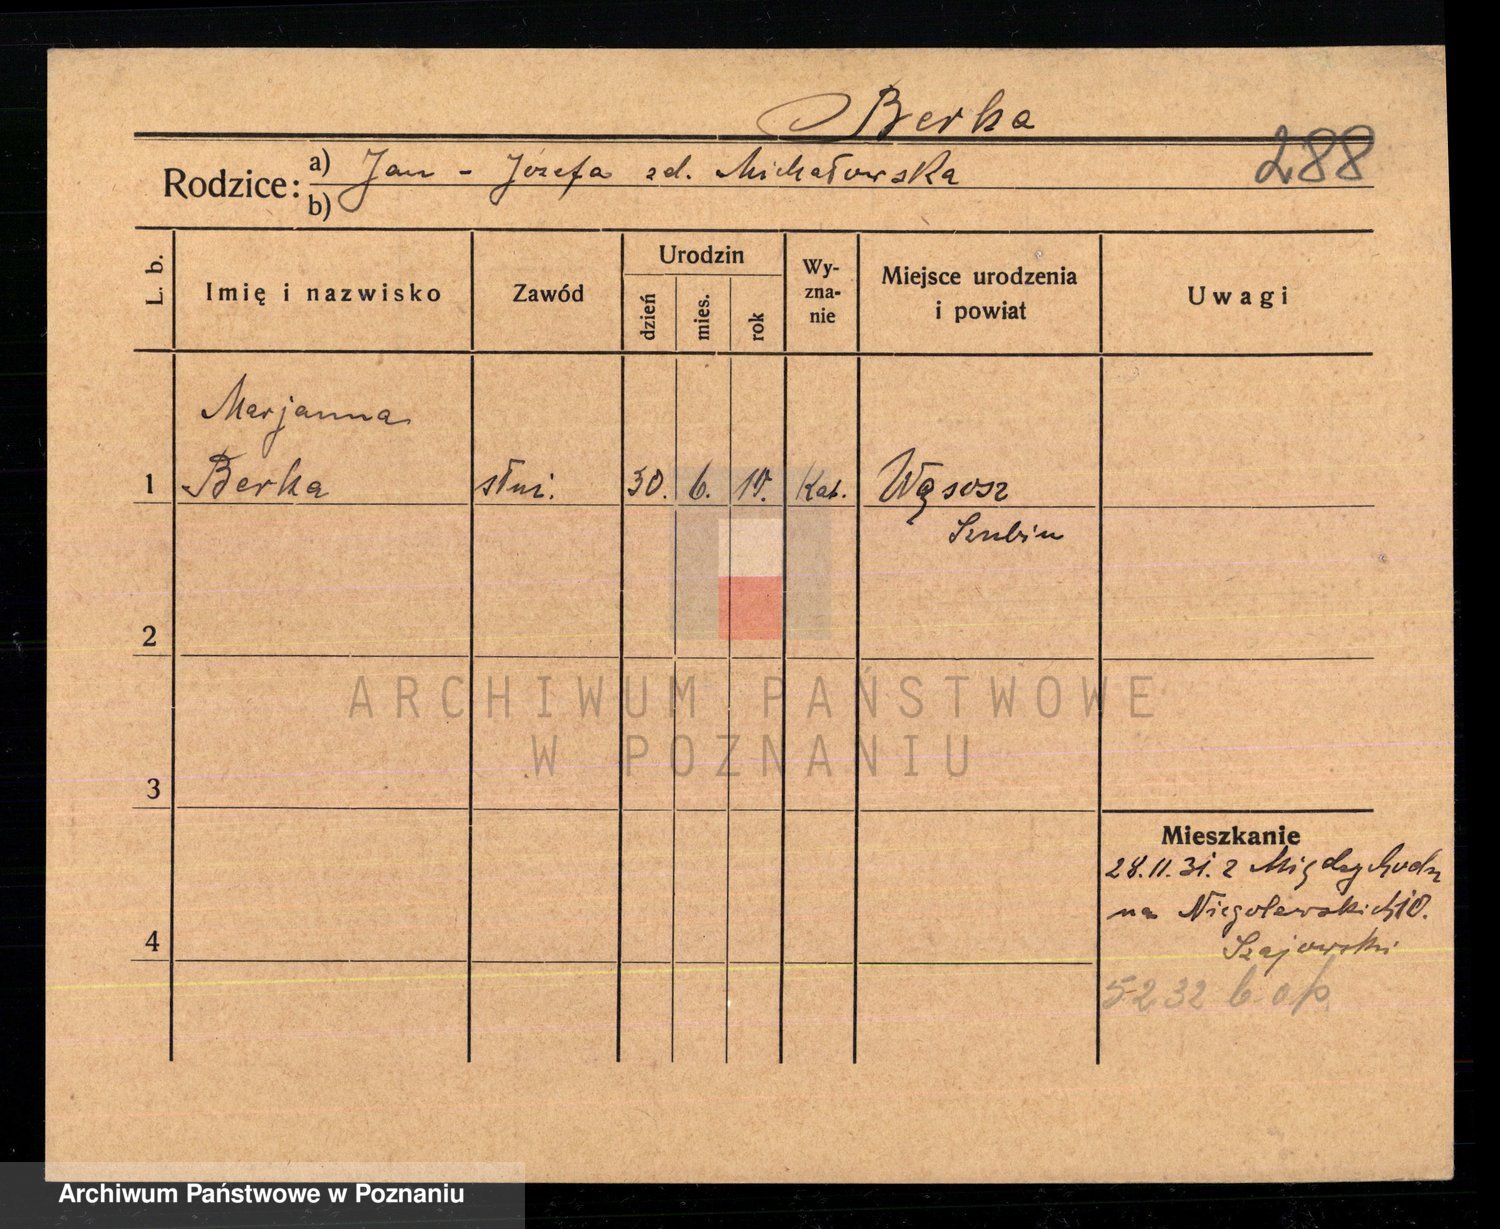 Berka
288
Rodzice: a) Jan - Józefa zd. Michałowska
b)
L. b. Imię i nazwisko Zawód Urodzin dzień mies. rok Wy-zna-nie Miejsce urodzenia i powiat Uwagi
Marjanna
1 Berka służ. 30. 6. 10. Kat. Wąsosz
Szubin
2
ARCHIWUM PAŃSTWOWE
W POZNANIU
3
Mieszkanie
28.11.31. z Międzychodu
na Niegolewskich 10.
Szajowski
4
5232
Archiwum Państwowe w Poznaniu